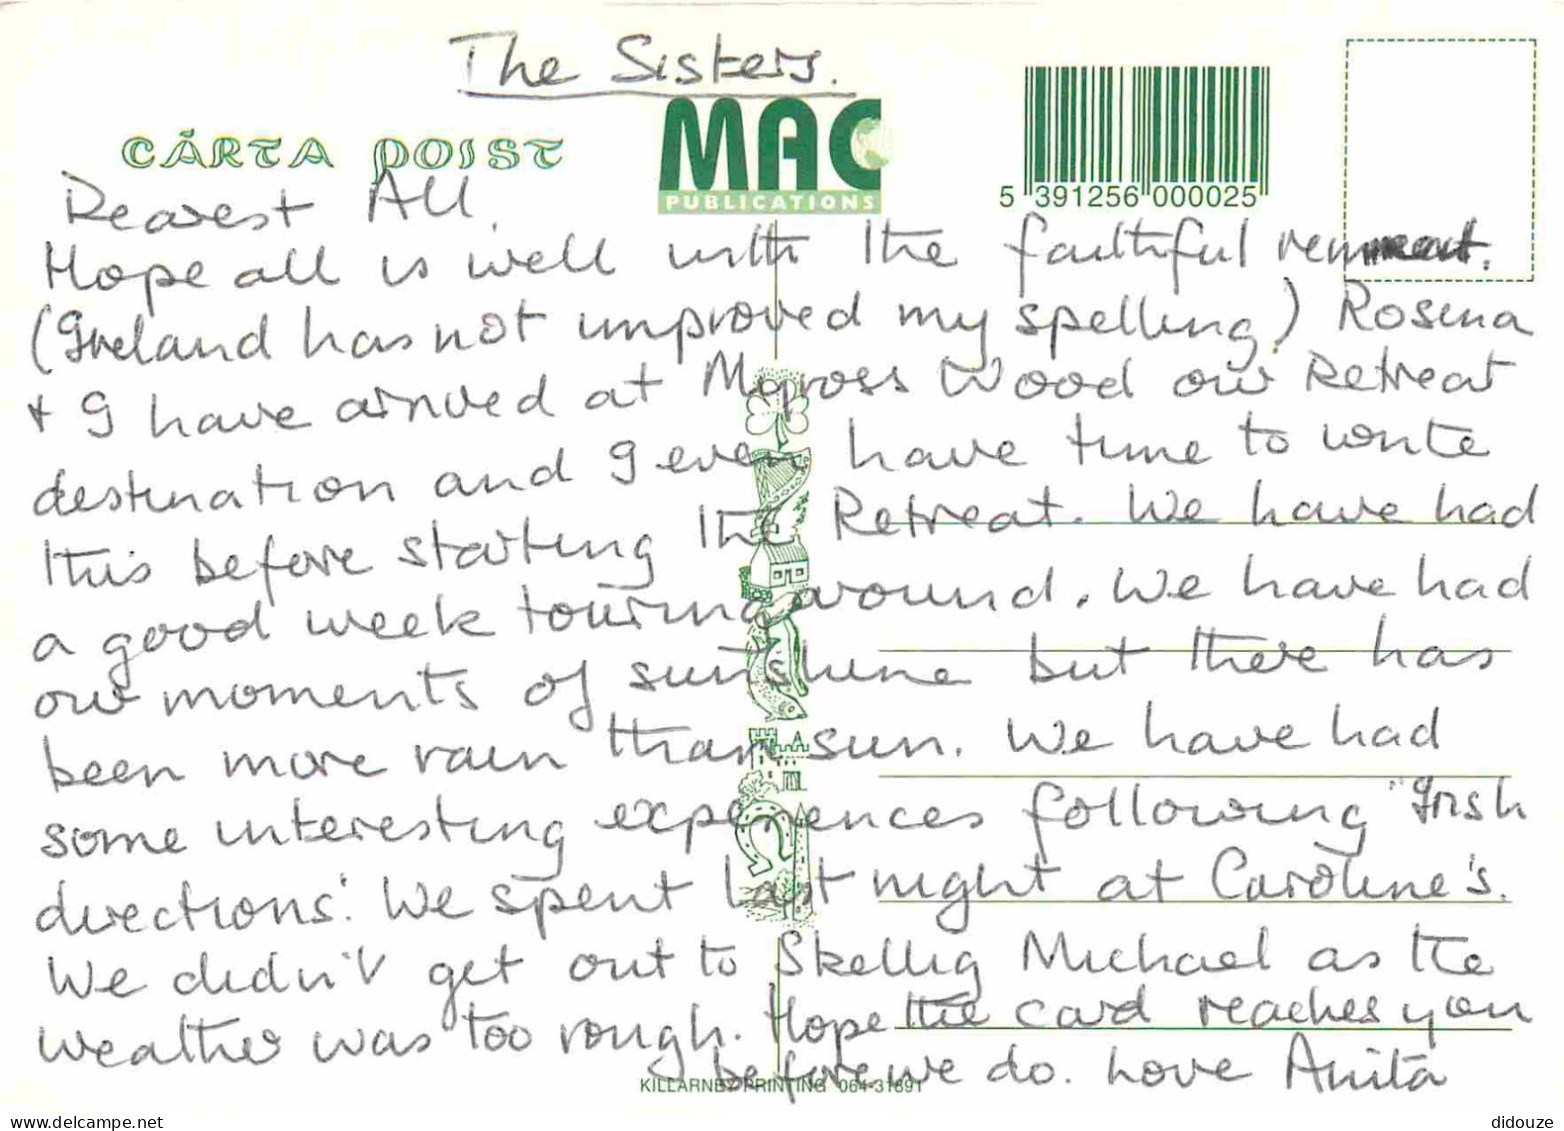 The Sisters.
CÁRTA POIST
MAC
PUBLICATIONS
5 391256 000025
Dearest All,
Hope all is well with the faithful
(Ireland has not improved my spelling!) Rosena
+ I have arrived at Myross Wood our Retreat
destination and I even have time to write
this before starting the Retreat. We have had
a good week touring around. We have had
our moments of sunshine but there has
been more rain than sun. We have had
some interesting experiences following "Irish
directions'. We spent last night at Caroline's.
We didn't get out to Skellig Michael as the
weather was too rough. Hope the card reaches you
before we do. Love Anita
KILLARNEY PRINTING 064-31891
didouze